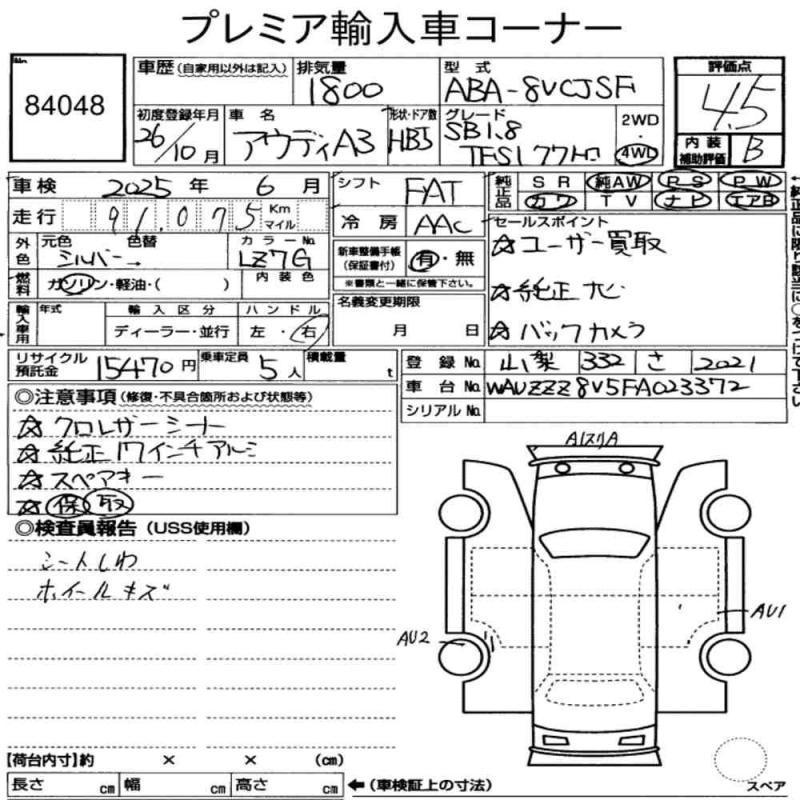 プレミア輸入車コーナー
84048
車歴 (自家用以外は記入) 排気量 1800 型式 ABA-8VCJSF 評価点 4.5
初度登録年月 26/10月 車名 アウディA3 形状・ドア数 HB5 グレード SB1.8 TFSI 77トロ 2WD・4WD 内装補助評価 B
車検 2025年 6月 シフト FAT 純正品 SR 純AW PS PW
走行 91,075 Km マイル 冷房 AAC カワ TV ナビ エアB
外色 元色 シルバー 色替 → カラーNo. LZ7G 内装色
燃料 ガソリン・軽油・( )
新車整備手帳 (保証書付) 有・無
※書類と一緒に保管下さい。
セールスポイント
☆ユーザー買取
☆純正ナビ
☆バックカメラ
輸入車用 年式 輸入区分 ディーラー・並行 ハンドル 左・右
名義変更期限 月 日
リサイクル預託金 15470円 乗車定員 5人 積載量 t
登録No. 山梨 332 さ 2021
車台No. WAUZZZ8V5FA023372
シリアルNo.
◎注意事項 (修復・不具合箇所および状態等)
☆クロレザーシート
☆純正17インチアルミ
☆スペアキー
☆保 取
◎検査員報告 (USS使用欄)
シートしわ
ホイールキズ
AU2
AU1
スペア
【荷台内寸】約 × × (cm)
長さ cm 幅 cm 高さ cm ←(車検証上の寸法)